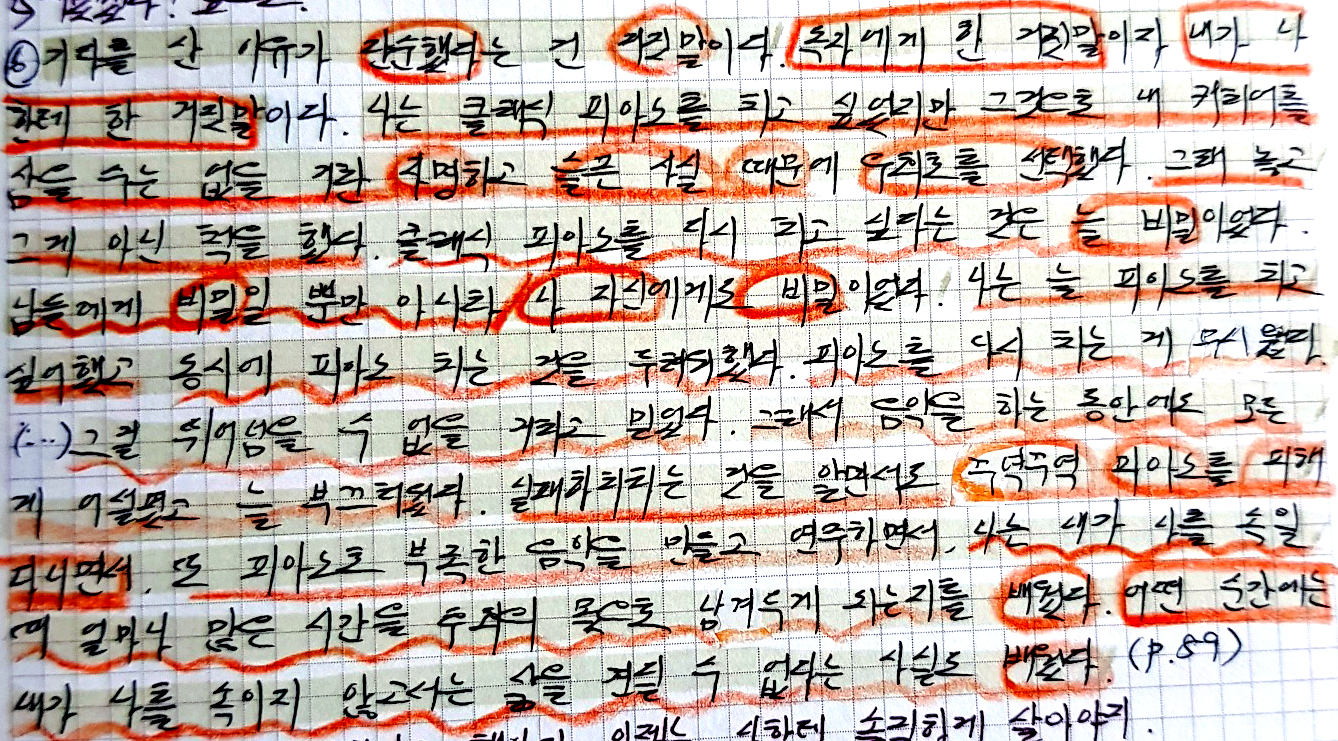 ⑥ 기타를 산 이유가 단순했다는 건 거짓말이다. 독자에게 한 거짓말이자 내가 나
한테 한 거짓말이다. 나는 클래식 피아노를 치고 싶었지만 그것으로 내 커리어를
삼을 수는 없을 거란 자명하고 슬픈 사실 때문에 우회로를 선택했다. 그래 놓고
그게 아닌 척을 했다. 클래식 피아노를 다시 치고 싶다는 것은 늘 비밀이었다.
남들에게 비밀일 뿐만 아니라 / 나 자신에게도 비밀이었다. 나는 늘 피아노를 치고
싶어했고 동시에 피아노 치는 것을 두려워했다. 피아노를 다시 치는 게 무서웠다.
(…) 그걸 뛰어넘을 수 없을 거라고 믿었다. 그래서 음악을 하는 동안에도 모든
게 어설펐고 늘 부끄러웠다. 실패하리라는 것을 알면서도 꾸역꾸역 피아노를 피해
다니면서, 또 피아노로 부족한 음악을 만들고 연주하면서, 나는 내가 나를 속일
때 얼마나 많은 시간을 수치의 몫으로 남겨두게 되는지를 배웠다. 어떤 순간에는
내가 나를 속이지 않고서는 삶을 견딜 수 없다는 사실도 배웠다. (p.89)
이제는 나한테 솔직하게 살아야지.